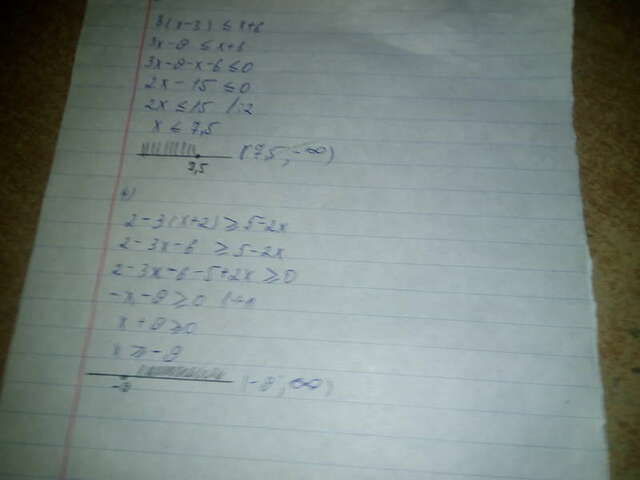 3(x-3) ≤ x+6
3x-9 ≤ x+6
3x-9-x-6 ≤ 0
2x - 15 ≤ 0
2x ≤ 15 /:2
x ≤ 7,5
7,5
(7,5, -∞)
b)
2-3(x+2) ≥ 5-2x
2-3x-6 ≥ 5-2x
2-3x-6-5+2x ≥ 0
-x-9 ≥ 0
x+9 ≥ 0
x ≥ -9
-9
(-9, ∞)